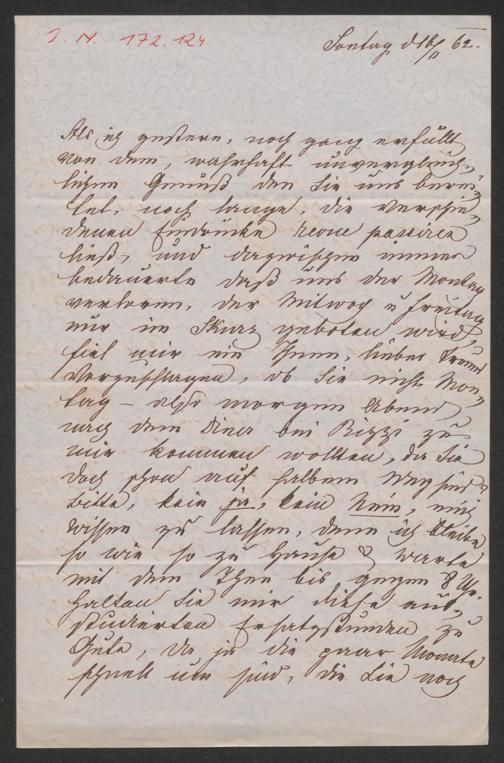 I. N. 172.124
Sontag d 16/11 62.
Als ich gestern, noch ganz erfüllt
von dem, wahrhaft unvergleich-
lichen Genuß den Sie uns berei-
tet, noch lange, die verschie-
denen Eindrücke revue passiren
ließ, und dazwischen immer
bedauerte daß uns der Montag
verloren, der Mitwoch u Freitag
nur im Skurz geboten wird,
fiel mir ein Ihnen, lieber Freund
vorzuschlagen, ob Sie nicht Mon-
tag – also morgen Abend,
nach dem Diner bei Rizzi zu
mir kommen wollten, da Sie
doch schon auf halbem Weg sind &
bitte, kein ja, kein Nein, mich
wissen zu lassen, denn ich bleibe
so wie so zu Hause & warte
mit dem Thee bis gegen 8 Uhr.
Halten Sie mir diese aus-
studierten Ersatzstunden zu
Gute, da ja die paar Monate
schnell um sind, die Sie noch